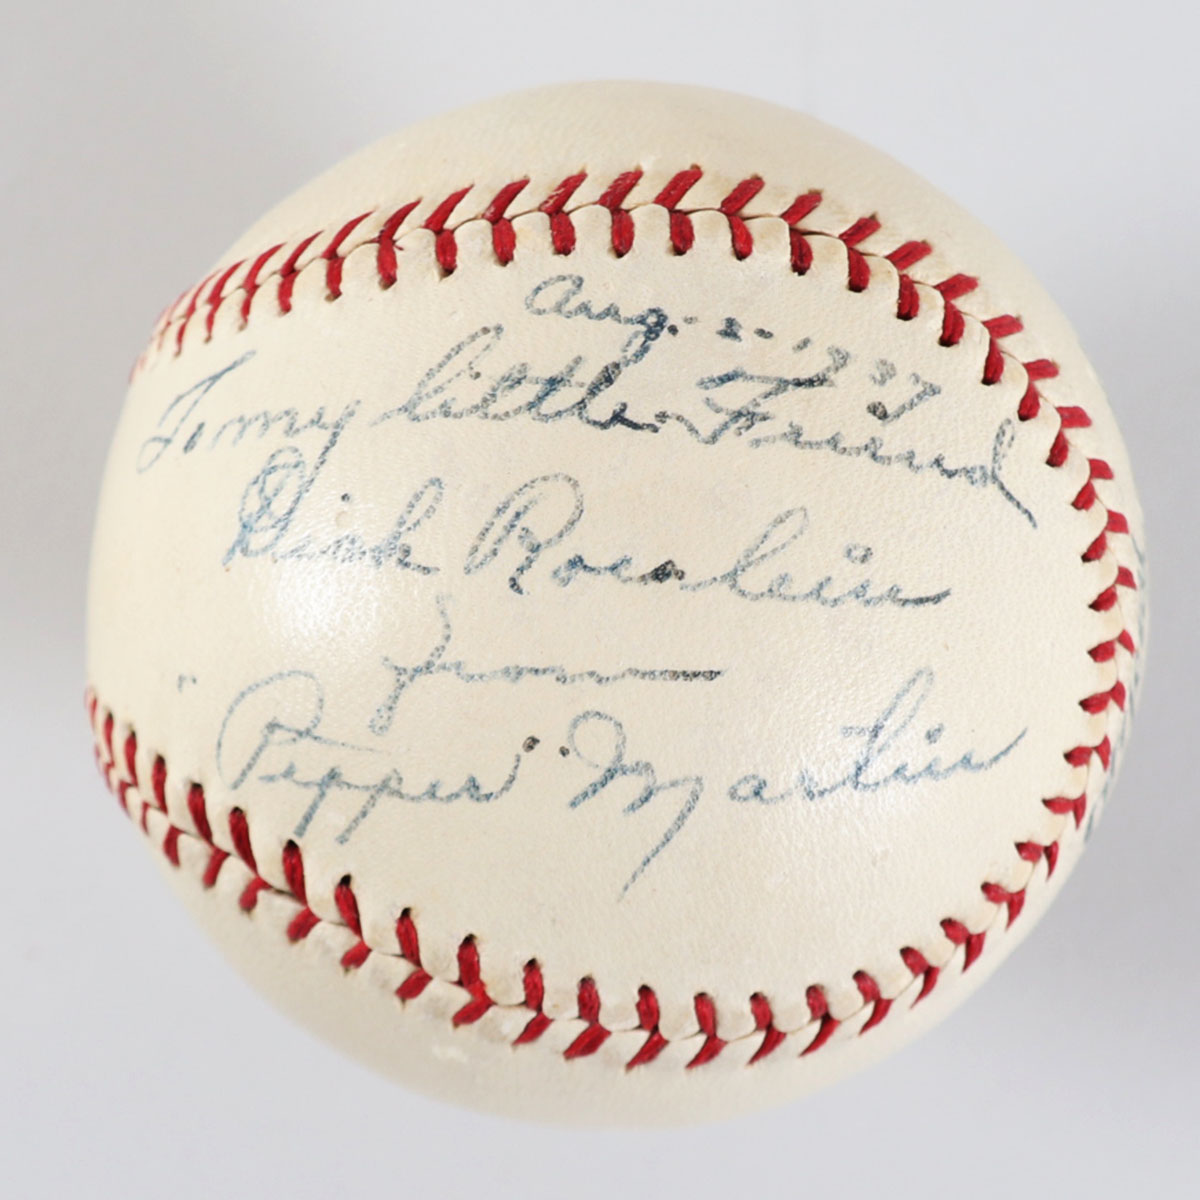 Aug. - 2 - 1937
To my little Friend
Dick
from
"Pepper" Martin